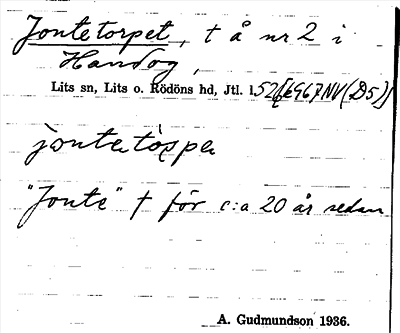 Jontetorpet, t å nr 2 i
Handog,
Lits sn, Lits o. Rödöns hd, Jtl. l.
jontetòrpe
"Jonte" † för c:a 20 år sedan
A. Gudmundson 1936.